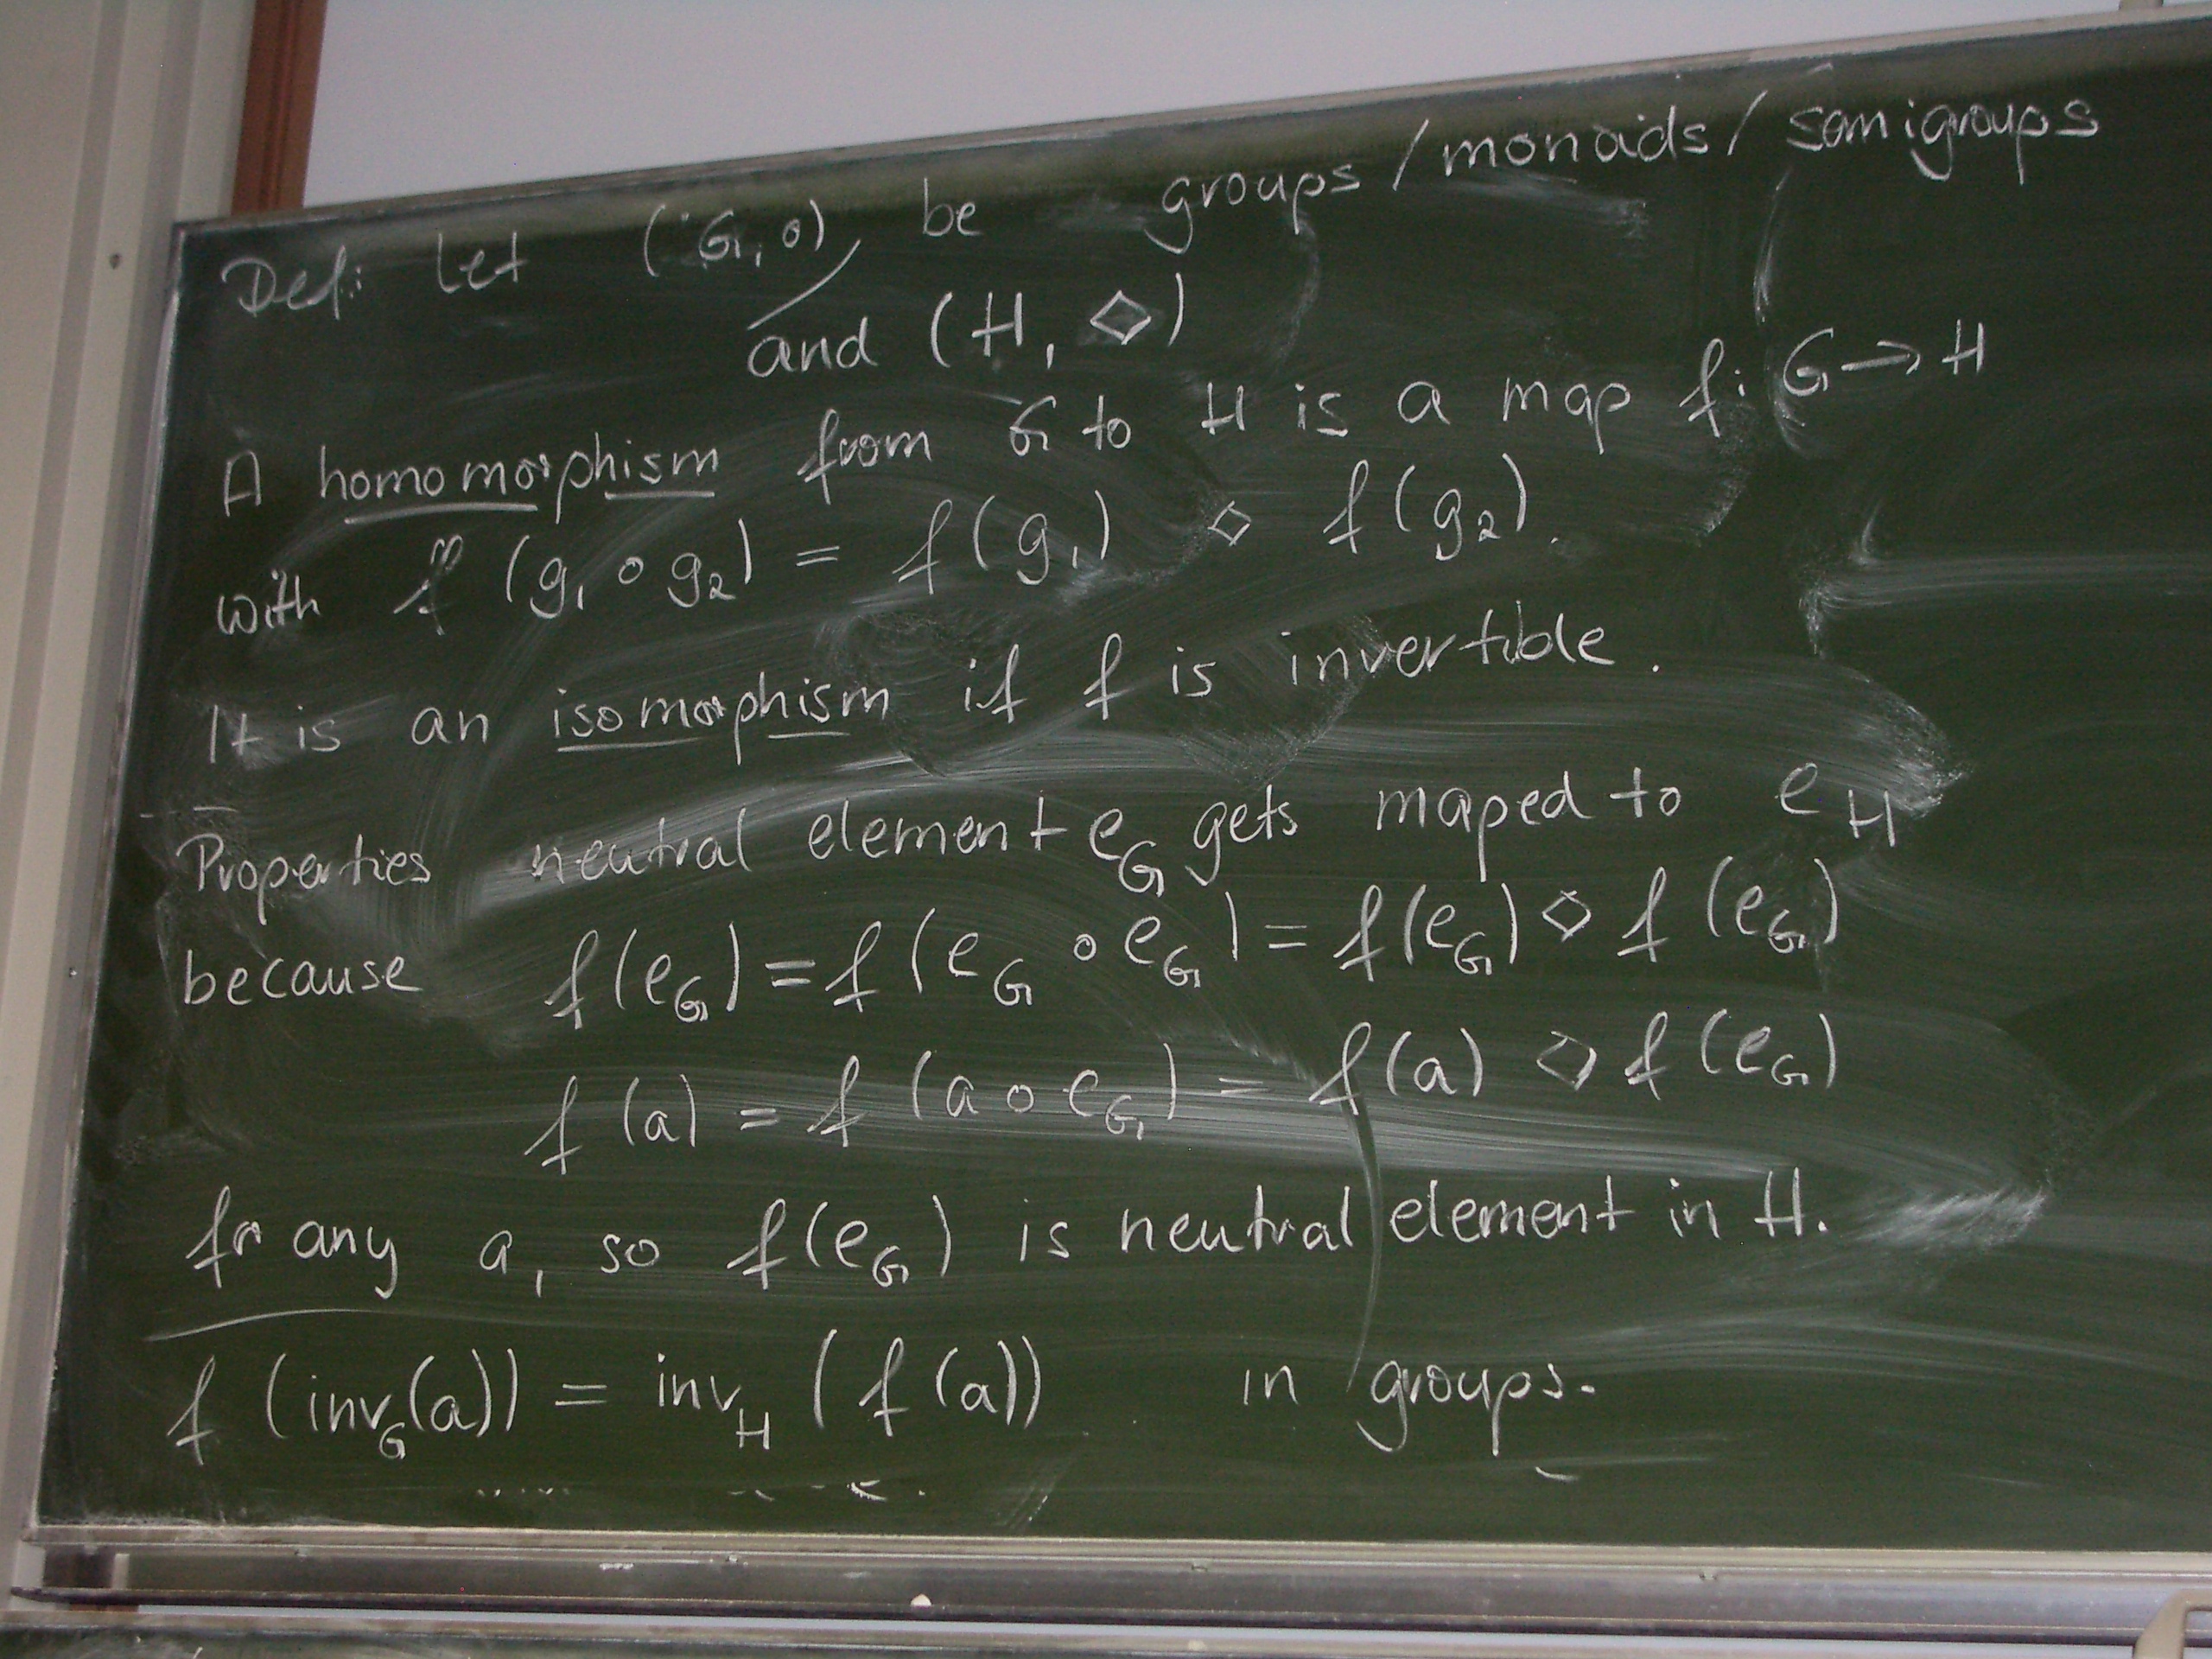 Def: Let (G, ∘) be groups / monoids / semigroups
and (H, ◇)
A homomorphism from G to H is a map f: G → H
with f (g₁ ∘ g₂) = f(g₁) ◇ f(g₂).
It is an isomorphism if f is invertible.
Properties neutral element e_G gets maped to e_H
because f(e_G) = f(e_G ∘ e_G) = f(e_G) ◇ f(e_G)
f(a) = f(a ∘ e_G) = f(a) ◇ f(e_G)
for any a, so f(e_G) is neutral element in H.
f(inv_G(a)) = inv_H(f(a)) in groups.